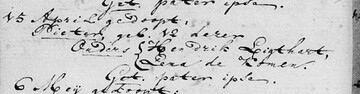 Get. pater ipse.
15 April gedoopt,
Pieter, geb. 12 dezer
Ouders { Hendrik Ligthart,
Lena de Komen.
Get. pater ipse.
6 Meij gedoopt: